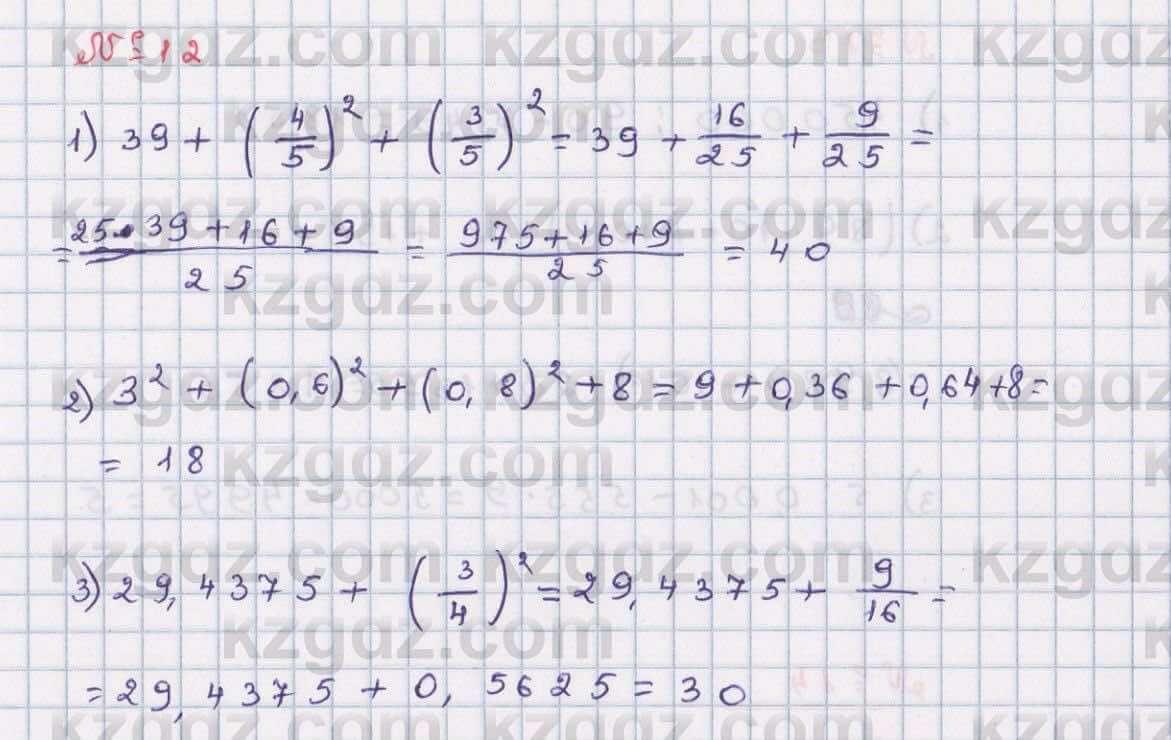 №12
1) 39 + (4/5)² + (3/5)² = 39 + 16/25 + 9/25 =
= (25·39+16+9)/25 = (975+16+9)/25 = 40
2) 3² + (0,6)² + (0,8)² + 8 = 9 + 0,36 + 0,64 + 8 =
= 18
3) 29,4375 + (3/4)² = 29,4375 + 9/16 =
= 29,4375 + 0,5625 = 30
kzgdz.com